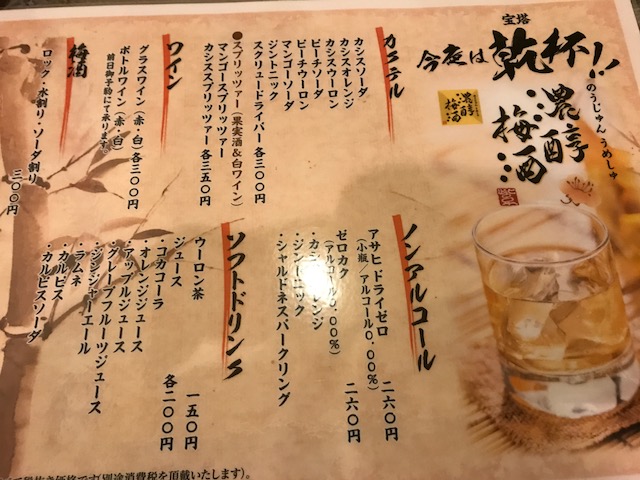 宝塔
今夜は乾杯!!
のうじゅんうめしゅ
濃醇梅酒
濃醇梅酒
カクテル
カシスソーダ
カシスオレンジ
カシスウーロン
ピーチソーダ
ピーチウーロン
マンゴーソーダ
ジントニック
スクリュードライバー 各三〇〇円
●スプリッツァー(果実酒&白ワイン)
マンゴースプリッツァー
カシススプリッツァー 各三五〇円
ワイン
グラスワイン(赤・白) 各三〇〇円
ボトルワイン(赤・白)
前日御予約にて承ります。
梅酒
ロック・水割り・ソーダ割り
三〇〇円
ノンアルコール
アサヒ ドライゼロ
(小瓶/アルコール0.00%) 二六〇円
ゼロカク
(アルコール0.00%) 二六〇円
・カシスオレンジ
・ジントニック
・シャルドネスパークリング
ソフトドリンク
ウーロン茶 一五〇円
ジュース 各二〇〇円
・コカコーラ
・オレンジジュース
・アップルジュース
・グレープフルーツジュース
・ジンジャーエール
・ラムネ
・カルピス
・カルピスソーダ
税抜き価格です(別途消費税を頂戴いたします)。